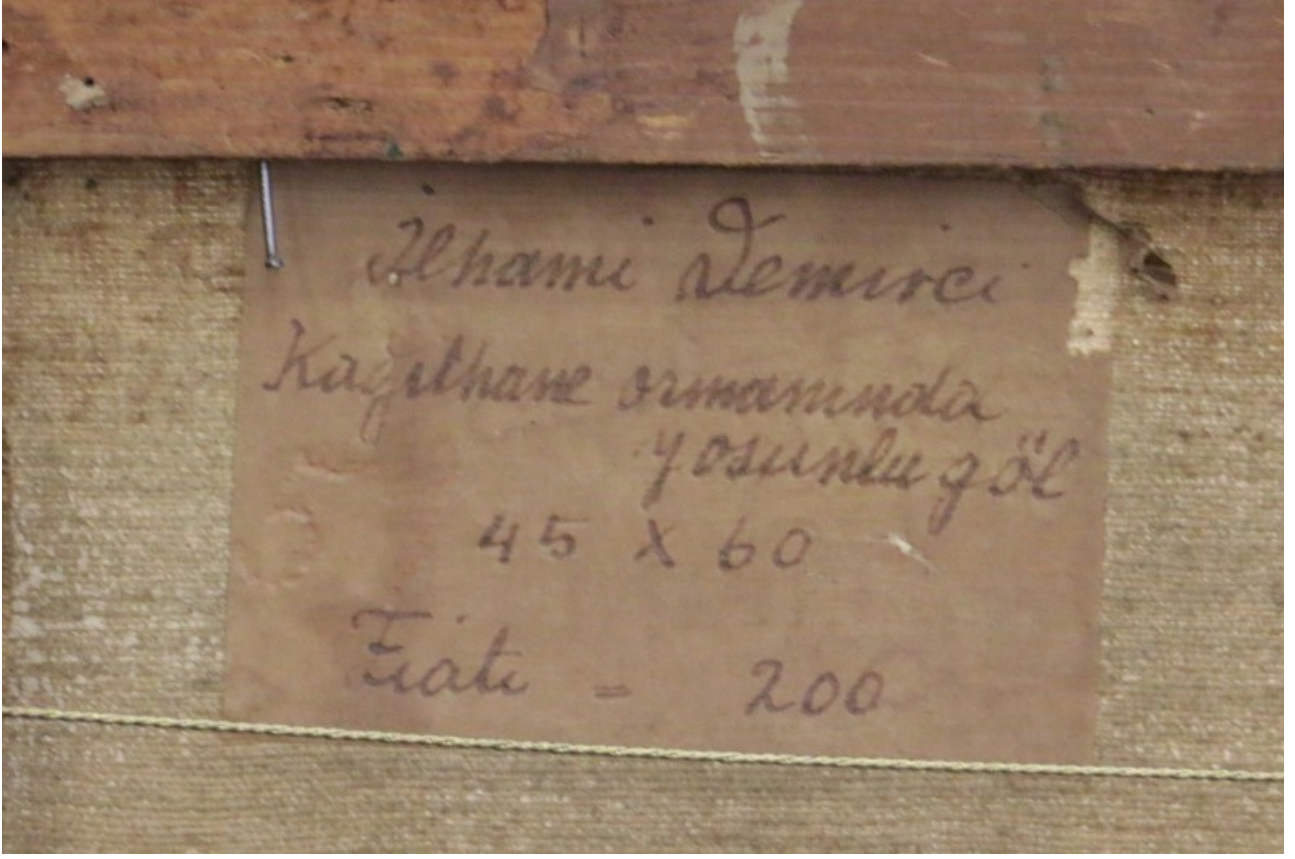 İlhami Demirci
Kağıthane ormanında
yosunlu göl
45 x 60
Fiatı = 200